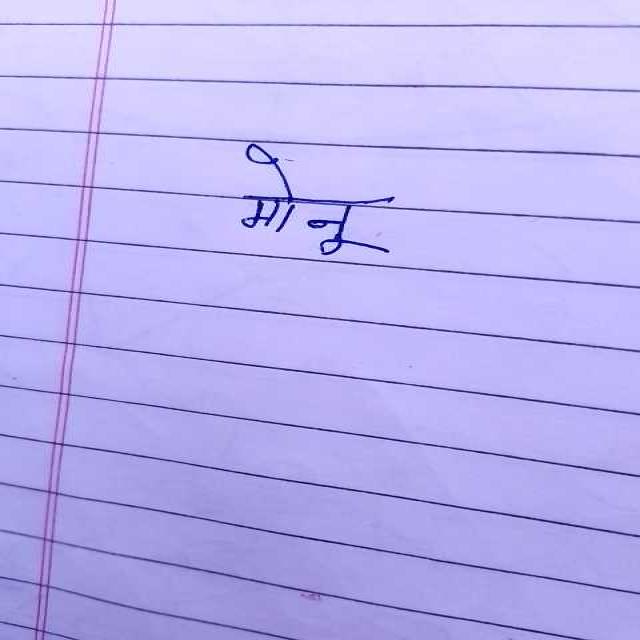 मोनू